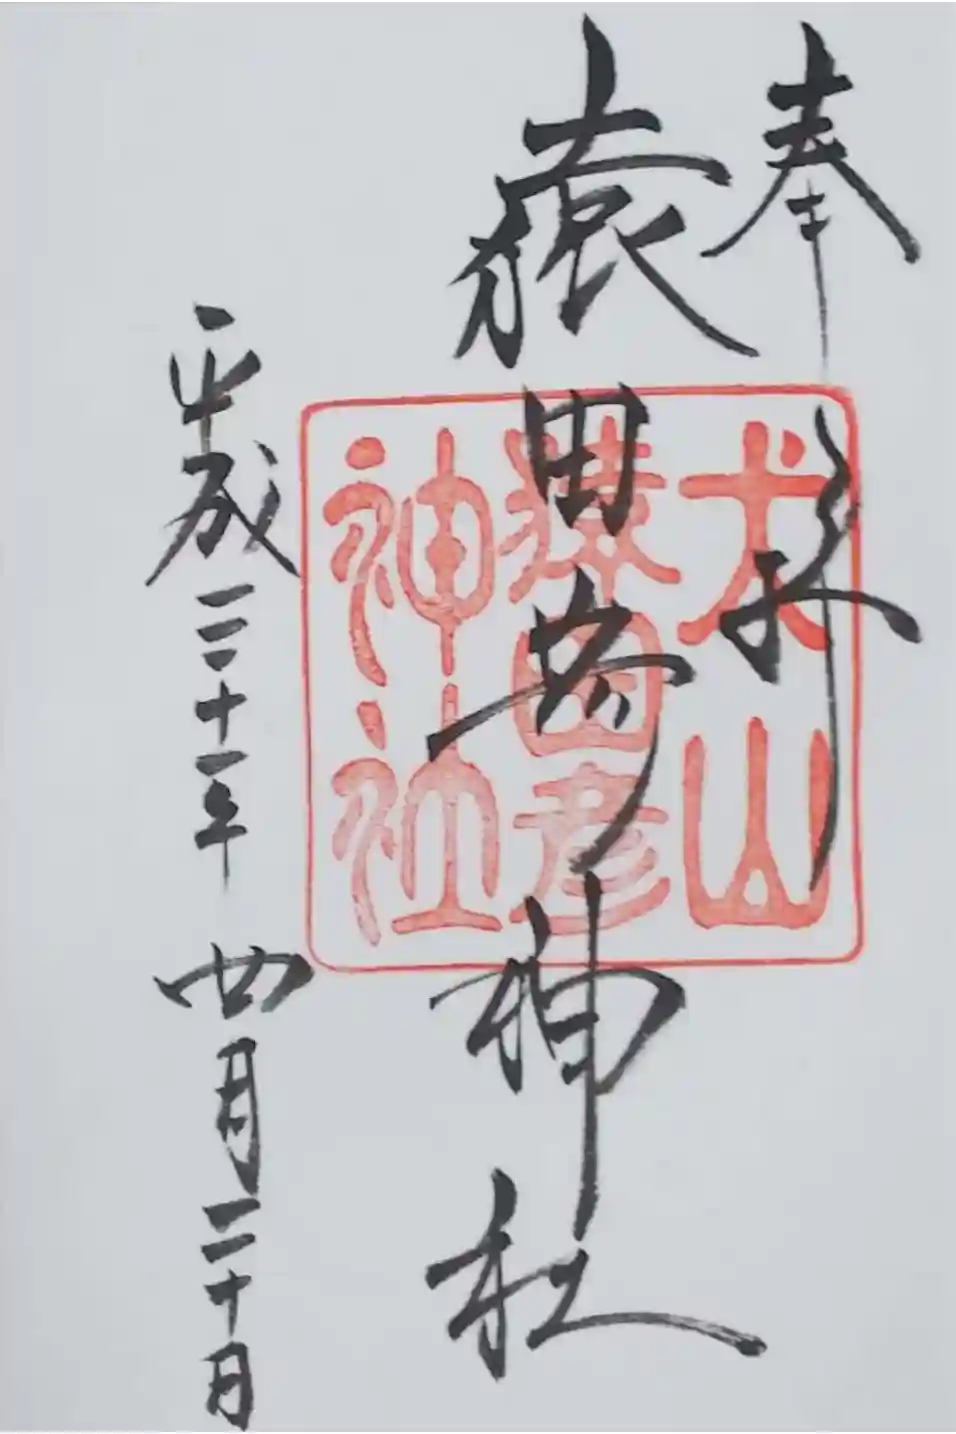 奉拝
猿田彦神社
平成三十一年四月二十日
犬山
猿田彦
神社